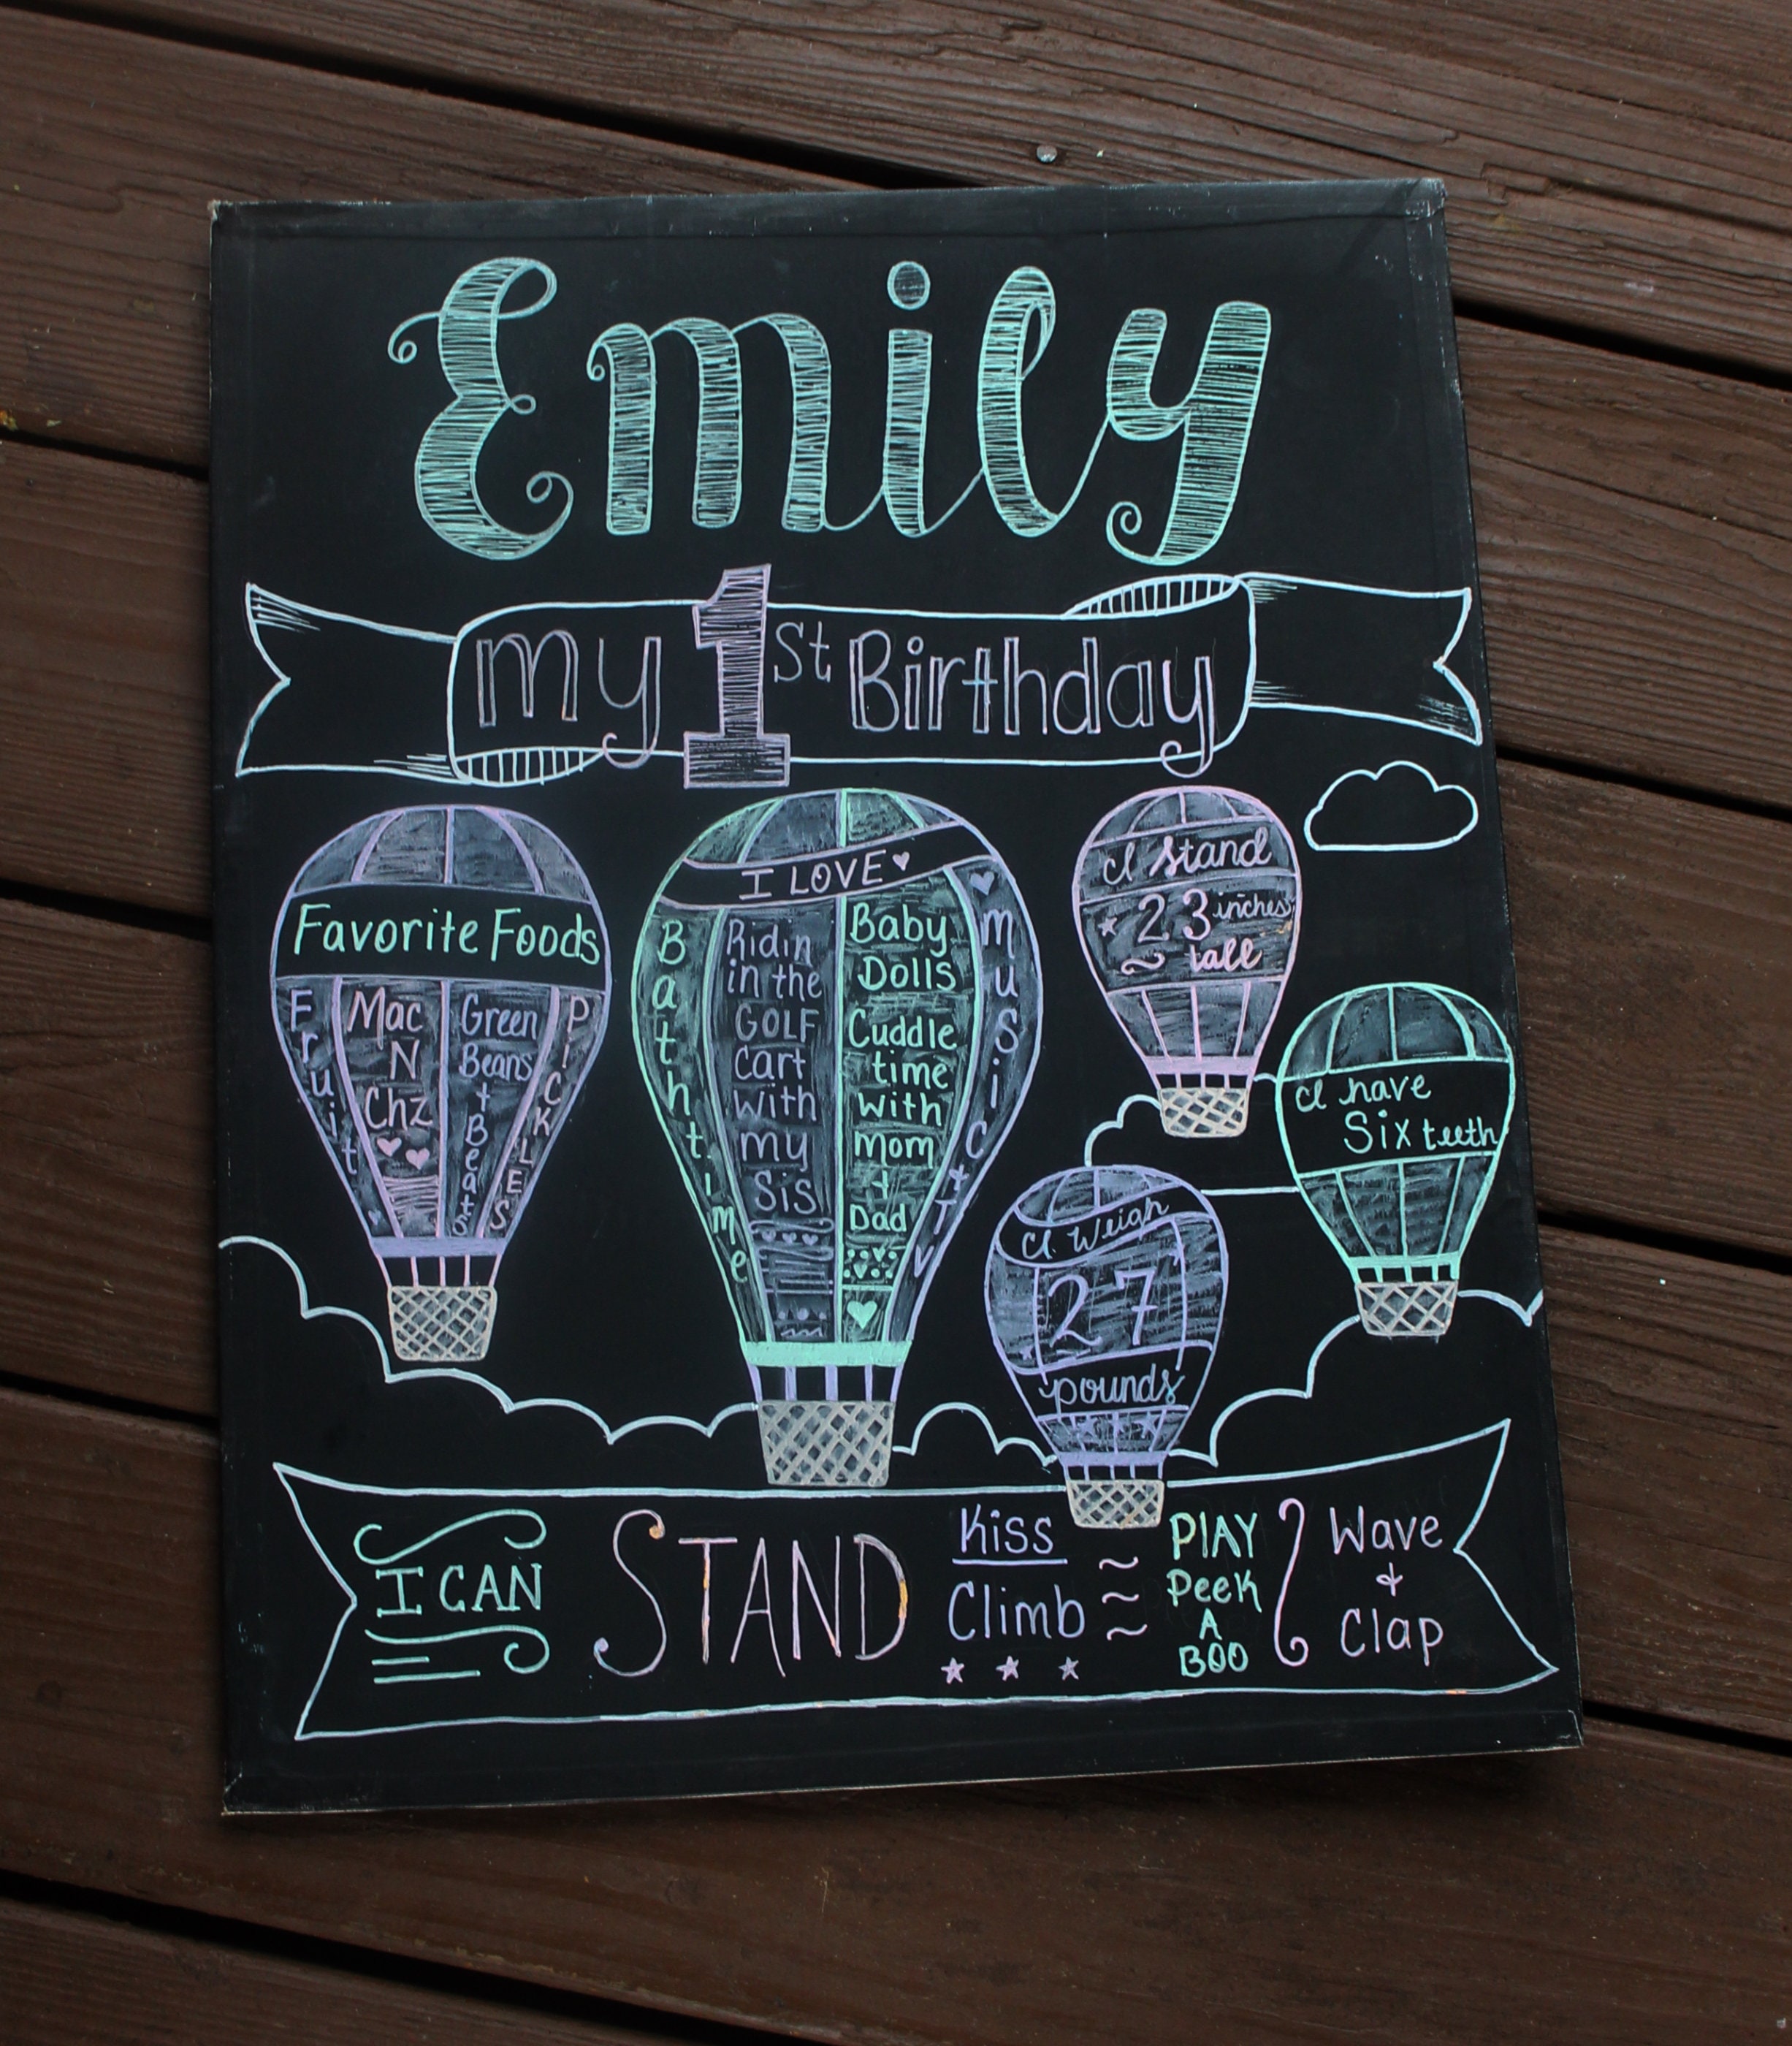 Emily
my 1st Birthday
Favorite Foods
Fruit
Mac
N
Chz
Green
Beans
+
Beats
PICKLES
I LOVE
Bathtime
Ridin
in the
GOLF
cart
with
my
Sis
Baby
Dolls
Cuddle
time
with
mom
+
Dad
music + TV
I stand
23 inches
tall
I have
Six teeth
I Weigh
27
pounds
I CAN
STAND
Kiss
Climb
PLAY
Peek
A
BOO
Wave
+
Clap